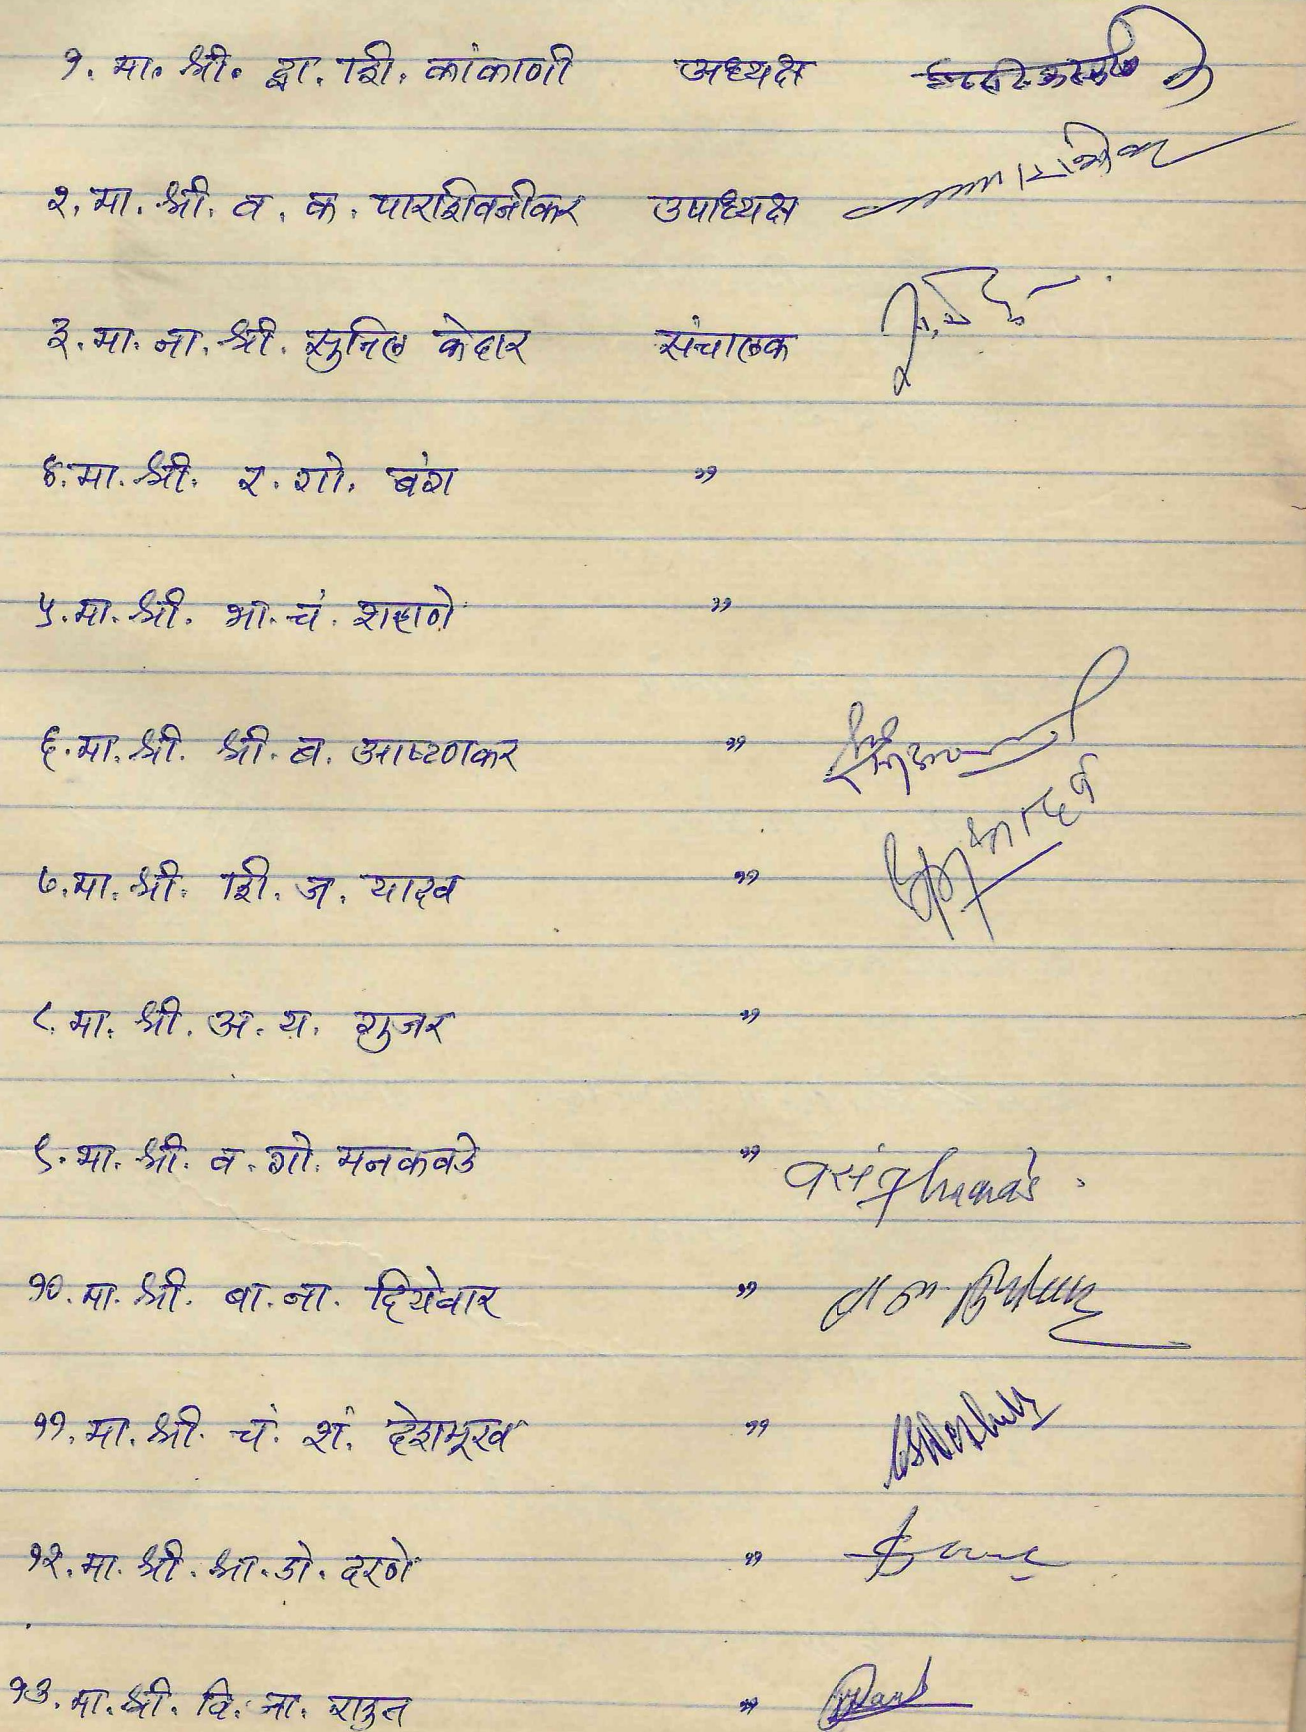 १. मा. श्री. द्वा. शि. कांकाणी अध्यक्ष
२. मा. श्री. व. क. पारशिवनीकर उपाध्यक्ष
३. मा. ना. श्री. सुनिल केदार संचालक
४. मा. श्री. र. गो. बंग "
५. मा. श्री. भा. चं. शहाणे "
६. मा. श्री. श्री. ब. आष्टणकर "
७. मा. श्री. शि. ज. यादव "
८. मा. श्री. अ. य. गुजर "
९. मा. श्री. व. गो. मनकवडे "
१०. मा. श्री. बा. ना. दियेवार "
११. मा. श्री. चं. शं. देशमूख "
१२. मा. श्री. श्रा. डो. दरणे "
१३. मा. श्री. वि. ना. राउत "